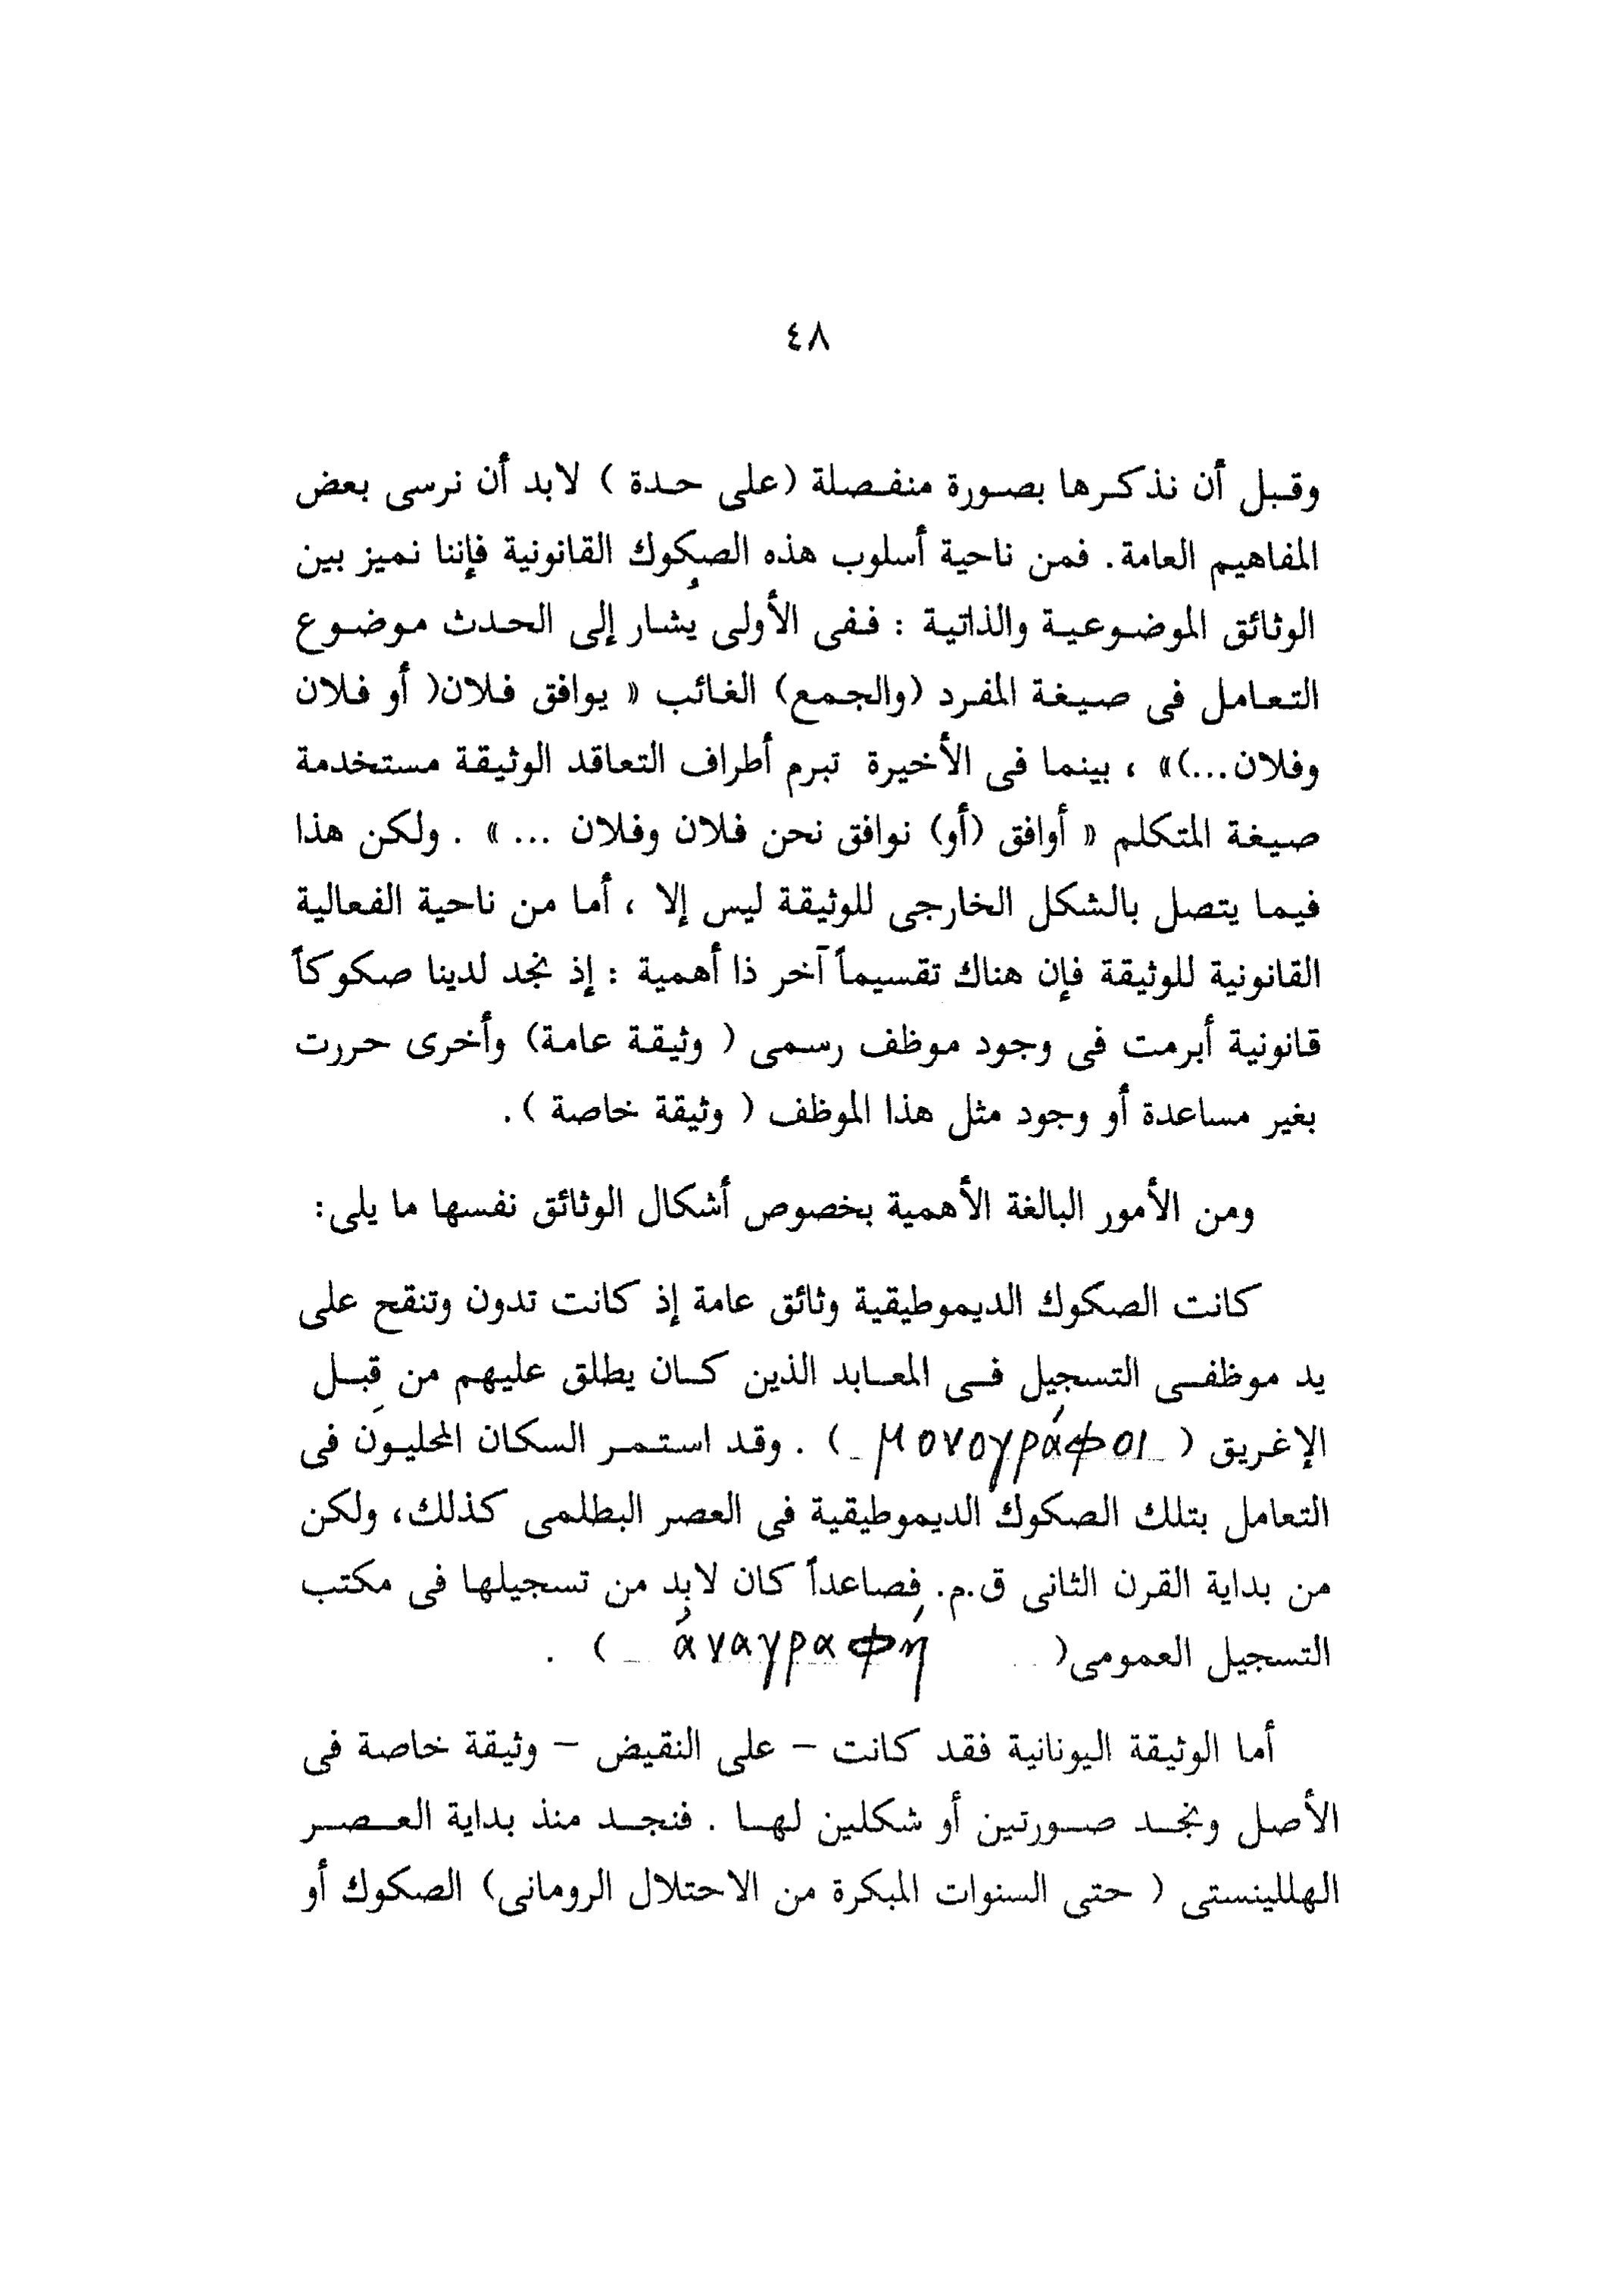 ٤٨
وقبل أن نذكرها بصورة منفصلة (على حدة ) لابد أن نرسى بعض
المفاهيم العامة. فمن ناحية أسلوب هذه الصكوك القانونية فإننا نميز بين
الوثائق الموضوعية والذاتية : ففى الأولى يُشار إلى الحدث موضوع
التعامل فى صيغة المفرد (والجمع) الغائب « يوافق فلان( أو فلان
وفلان...)» ، بينما فى الأخيرة تبرم أطراف التعاقد الوثيقة مستخدمة
صيغة المتكلم « أوافق (أو) نوافق نحن فلان وفلان ... » . ولكن هذا
فيما يتصل بالشكل الخارجى للوثيقة ليس إلا ، أما من ناحية الفعالية
القانونية للوثيقة فإن هناك تقسيماً آخر ذا أهمية : إذ نجد لدينا صكوكاً
قانونية أبرمت فى وجود موظف رسمى ( وثيقة عامة) وأخرى حررت
بغير مساعدة أو وجود مثل هذا الموظف ( وثيقة خاصة ).
ومن الأمور البالغة الأهمية بخصوص أشكال الوثائق نفسها ما يلى:
كانت الصكوك الديموطيقية وثائق عامة إذ كانت تدون وتنقح على
يد موظفى التسجيل فى المعابد الذين كان يطلق عليهم من قِبل
الإغريق ( μονογράφοι ) . وقد استمر السكان المحليون فى
التعامل بتلك الصكوك الديموطيقية فى العصر البطلمى كذلك، ولكن
من بداية القرن الثانى ق.م. فصاعداً كان لابد من تسجيلها فى مكتب
التسجيل العمومى( ἀναγραφή ) .
أما الوثيقة اليونانية فقد كانت – على النقيض – وثيقة خاصة فى
الأصل ونجد صورتين أو شكلين لها . فنجد منذ بداية العصر
الهللينستى ( حتى السنوات المبكرة من الاحتلال الرومانى) الصكوك أو